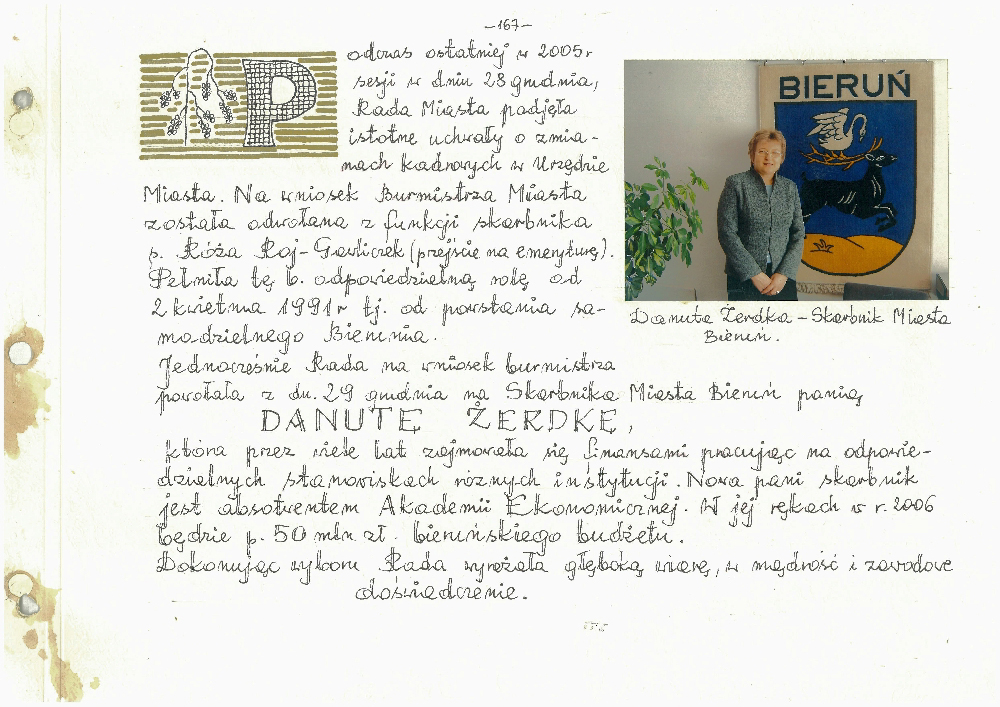 -167-
Podczas ostatniej w 2005r
sesji w dniu 28 grudnia,
Rada Miasta podjęła
istotne uchwały o zmia-
nach kadrowych w Urzędzie
Miasta. Na wniosek Burmistrza Miasta
została odwołana z funkcji skarbnika
p. Róża Roj-Gawliczek (przejście na emeryturę).
Pełniła tę b. odpowiedzialną rolę od
2 kwietnia 1991r tj. od powstania sa-
modzielnego Bierunia.
Jednocześnie Rada na wniosek burmistrza
powołała z dn. 29 grudnia na Skarbnika Miasta Bieruń panią
DANUTĘ ŻERDKĘ,
która przez wiele lat zajmowała się finansami pracując na odpowie-
dzialnych stanowiskach różnych instytucji. Nowa pani skarbnik
jest absolwentem Akademii Ekonomicznej. W jej rękach w r. 2006
będzie p. 50 mln zł. bieruńskiego budżetu.
Dokonując wyboru Rada wyrażała głęboką wiarę, w mądrość i zawodowe
doświadczenie.
BIERUŃ
Danuta Żerdka - Skarbnik Miasta
Bieruń.